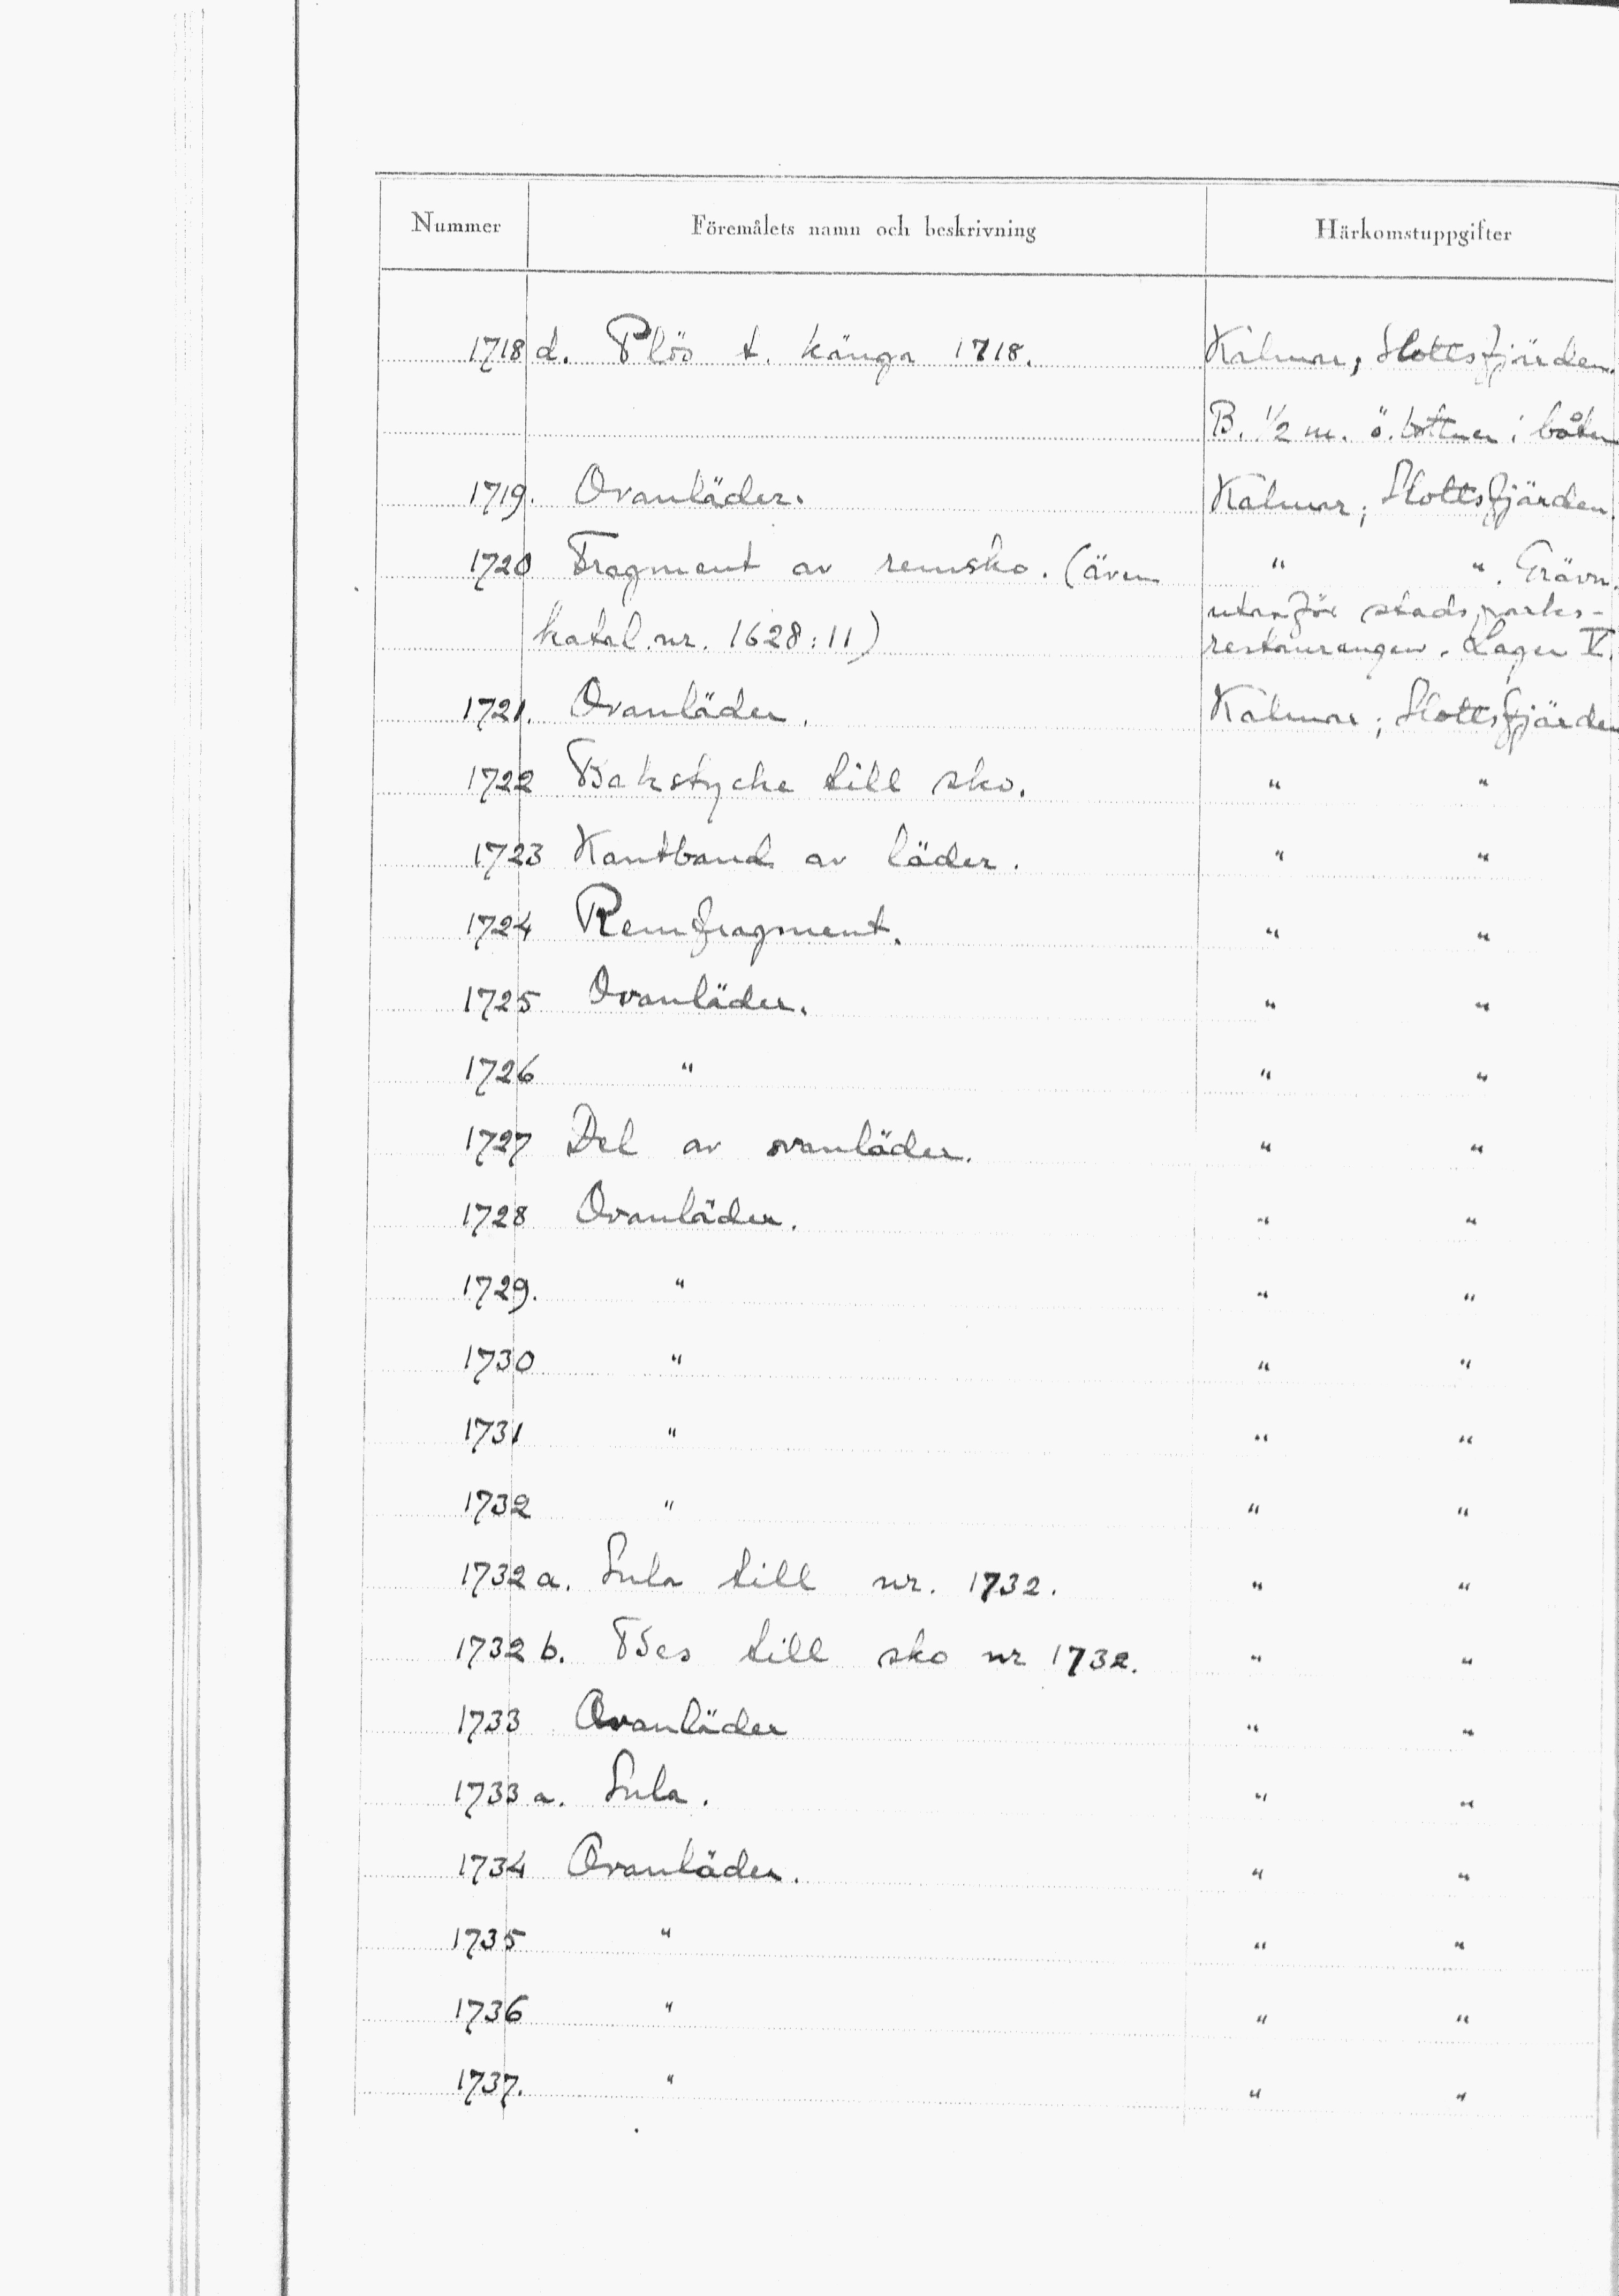 Nummer Föremålets namn och beskrivning Härkomstuppgifter
1718 d. Plös t. känga 1718. Kalmar, Slottsfjärden.
B. 1/2 m. ö. bottnen i båten
1719. Ovanläder. Kalmar, Slottsfjärden.
1720 Fragment av remsko. (även " " . Grävn.
utanför stadsparks-
katal. nr. 1628:11) restaurangen. Lager V.
1721. Ovanläder. Kalmar, Slottsfjärden
1722 Bakstycke till sko. " "
1723 Kantband av läder. " "
1724 Remfragment. " "
1725 Ovanläder. " "
1726 " " "
1727 Del av ovanläder. " "
1728 Ovanläder. " "
1729. " " "
1730 " " "
1731 " " "
1732 " " "
1732 a. Sula till nr. 1732. " "
1732 b. Bes till sko nr 1732. " "
1733 Ovanläder " "
1733 a. Sula. " "
1734 Ovanläder. " "
1735 " " "
1736 " " "
1737. " " "